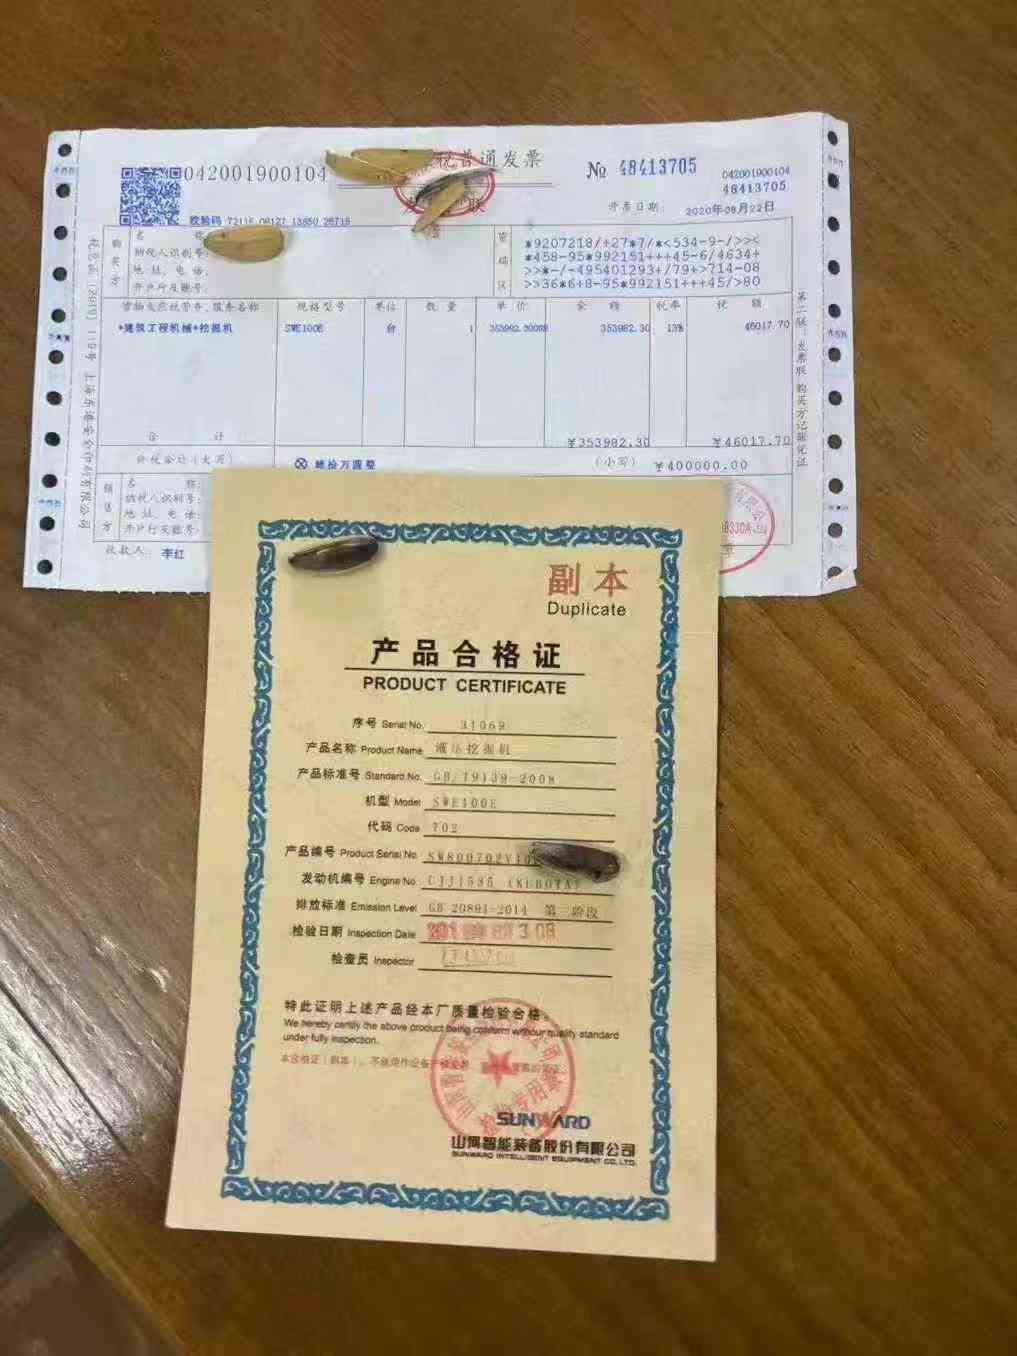 税普通发票
042001900104
№ 48413705
042001900104
48413705
开票日期: 2020年08月22日
校验码 72116 06127 13850 26716
购买方
名 称:
纳税人识别号:
地 址、电 话:
开户行及账号:
密码区
*9207218/+27*7/*<534-9-/>><
*458-95*992151+++45-6/4634+
>>*-/-495401293+/79+>714-08
>>36*6+8-95*992151+++45/>80
货物或应税劳务、服务名称 规格型号 单位 数 量 单 价 金 额 税率 税 额
*建筑工程机械*挖掘机 SWE100E 台 1 353982.30 353982.30 13% 46017.70
合 计 ¥353982.30 ¥46017.70
价税合计(大写) ⊗ 肆拾万圆整 (小写) ¥400000.00
销售方
名 称:
纳税人识别号:
地 址、电 话:
开户行及账号:
收款人: 李红
第二联:发票联 购买方记账凭证
副本
Duplicate
产品合格证
PRODUCT CERTIFICATE
序号 Serial No. 31069
产品名称 Product Name 液压挖掘机
产品标准号 Standard No. GB/T9139-2008
机型 Model SWE100E
代码 Code 702
产品编号 Product Serial No.
发动机编号 Engine No. (KUBOTA)
排放标准 Emission Level GB 20891-2014 第三阶段
检验日期 Inspection Date
检查员 Inspector
特此证明上述产品经本厂质量检验合格。
We hereby certify the above product being conform withour quality standard
under fully inspection.
SUNWARD
山河智能装备股份有限公司
SUNWARD INTELLIGENT EQUIPMENT CO., LTD.